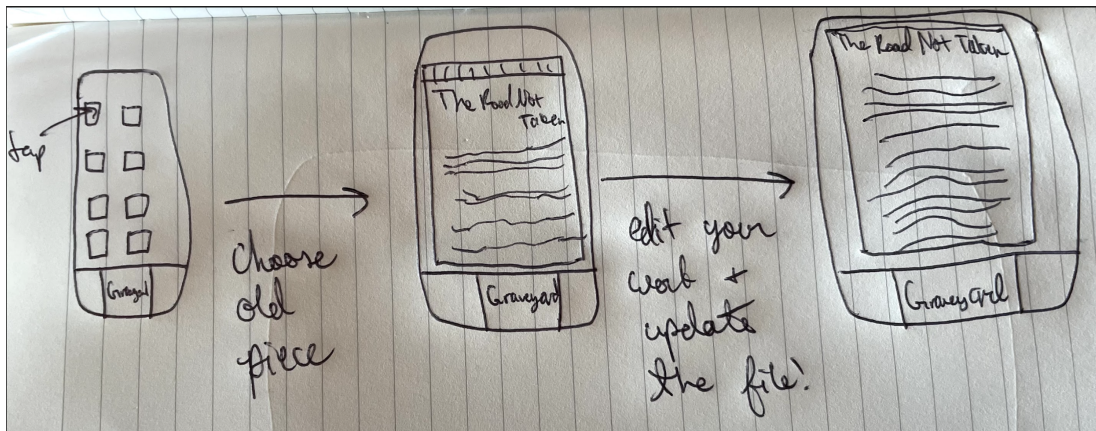 tap
Graveyard
choose
old
piece
The Road Not
Taken
Graveyard
edit your
work +
update
the file!
The Road Not Taken
Graveyard